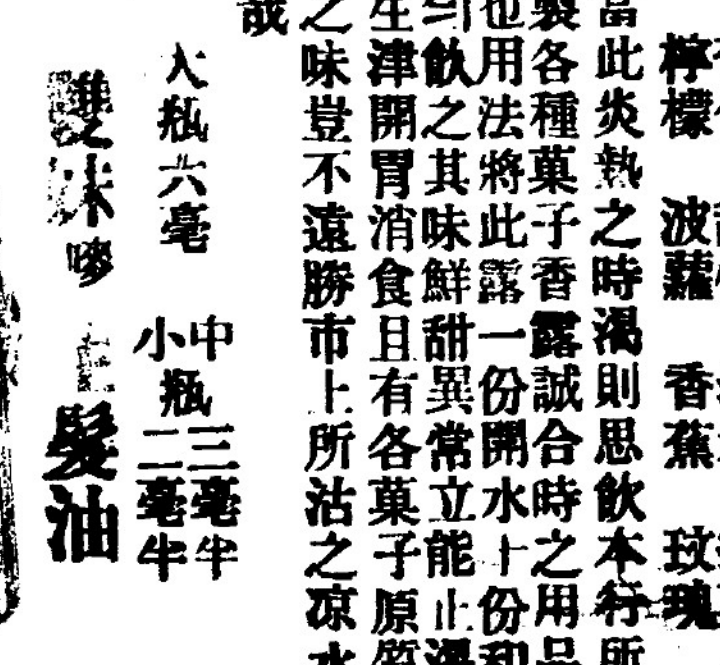 檸檬 波蘿 香蕉 玫瑰
當此炎熱之時渴則思飲本行所
製各種菓子香露誠合時之用品
也用法將此露一份開水十份和
勻飲之其味鮮甜異常立能止渴
生津開胃消食且有各菓子原質
之味豈不遠勝市上所沽之凉水
哉
大瓶六毫 中瓶三毫半
小瓶二毫半
雙妹嘜 生髮油